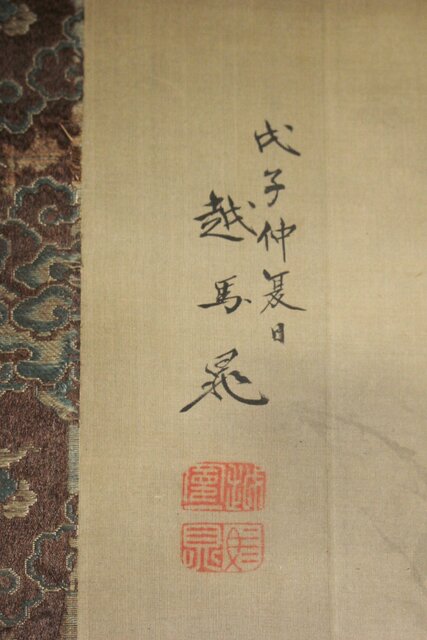 戊子仲夏日
越馬晁